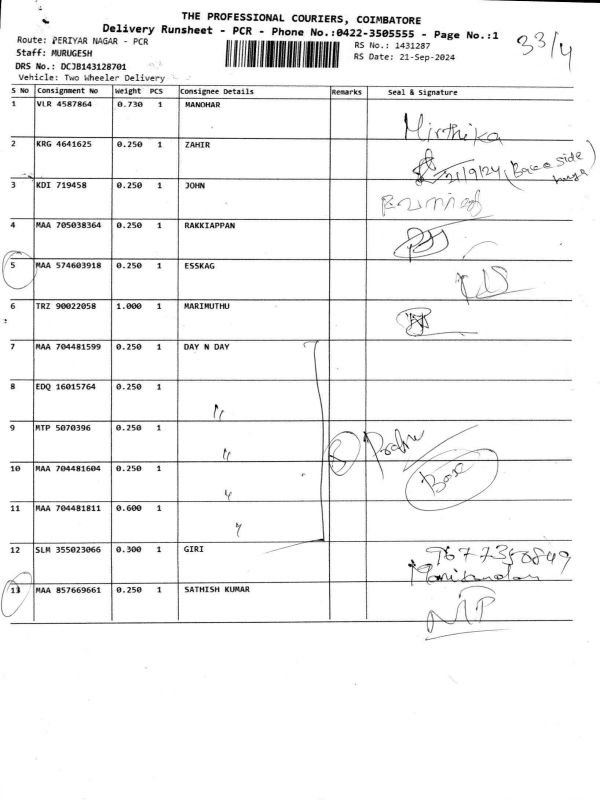 THE PROFESSIONAL COURIERS, COIMBATORE
Delivery Runsheet - PCR - Phone No.:0422-3505555 - Page No.:1
33/4
Route: PERIYAR NAGAR - PCR
RS No.: 1431287
Staff: MURUGESH
RS Date: 21-Sep-2024
DRS No.: DCJB143128701
Vehicle: Two Wheeler Delivery
S No Consignment No Weight PCS Consignee Details Remarks Seal & Signature
1 VLR 4587864 0.730 1 MANOHAR
Mirthika
2 KRG 4641625 0.250 1 ZAHIR
21/9/24 side
3 KDI 719458 0.250 1 JOHN
4 MAA 705038364 0.250 1 RAKKIAPPAN
5 MAA 574603918 0.250 1 ESSKAG
6 TRZ 90022058 1.000 1 MARIMUTHU
7 MAA 704481599 0.250 1 DAY N DAY
8 EDQ 16015764 0.250 1 "
9 MTP 5070396 0.250 1 "
10 MAA 704481604 0.250 1 "
11 MAA 704481811 0.600 1 "
12 SLM 355023066 0.300 1 GIRI
Manikandan
13 MAA 857669661 0.250 1 SATHISH KUMAR